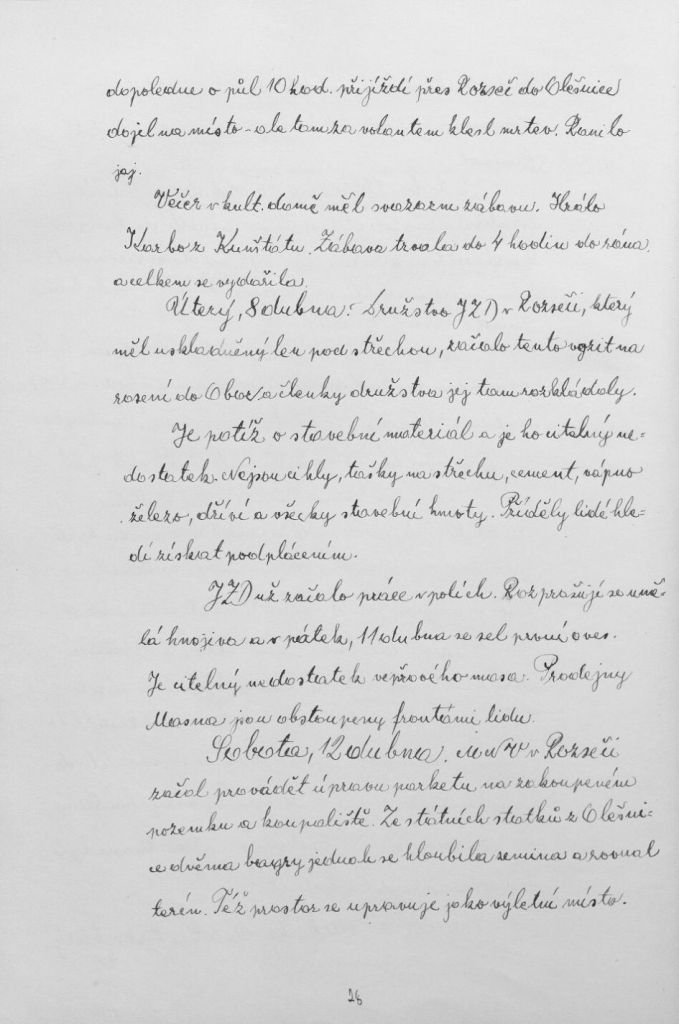 dopoledne o půl 10 hod. přijíždí přes Rozseč do Olešnice
dojel na místo - ale tam za volantem klesl mrtev. Ranilo
jej.
Večer v kult. domě měl svazarm zábavu. Hrálo
Karbo z Kunštátu. Zábava trvala do 4 hodin do rána
a celkem se vydařila.
Úterý, 8 dubna: Družstvo JZD v Rozseči, který
měl uskladněný len pod střechou, začalo tento vozit na
rosení do Obor a členky družstva jej tam rozkládaly.
Je potíž o stavební materiál a je ho citelný ne=
dostatek. Nejsou cihly, tašky na střechu, cement, vápno
železo, dříví a všecky stavební hmoty. Příděly lidé hle=
dí získat podplácením.
JZD už začalo práce v polích. Rozprašují se umě=
lá hnojiva a v pátek, 11 dubna se sel první oves.
Je citelný nedostatek vepřového masa. Prodejny
Masna jsou obstoupeny frontámi lidu.
Sobota, 12 dubna. MNV v Rozseči
začal provádět úpravu parketu na zakoupeném
pozemku a koupaliště. Ze státních statků z Olešni=
ce dvěma bagry jednak se hloubila zemina a rovnal
terén. Též prostor se upravuje jako výletní místo.
26